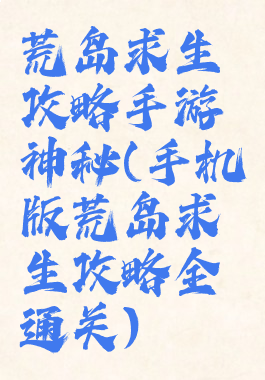 荒岛求生
攻略手游
神秘(手机
版荒岛求
生攻略全
通关)